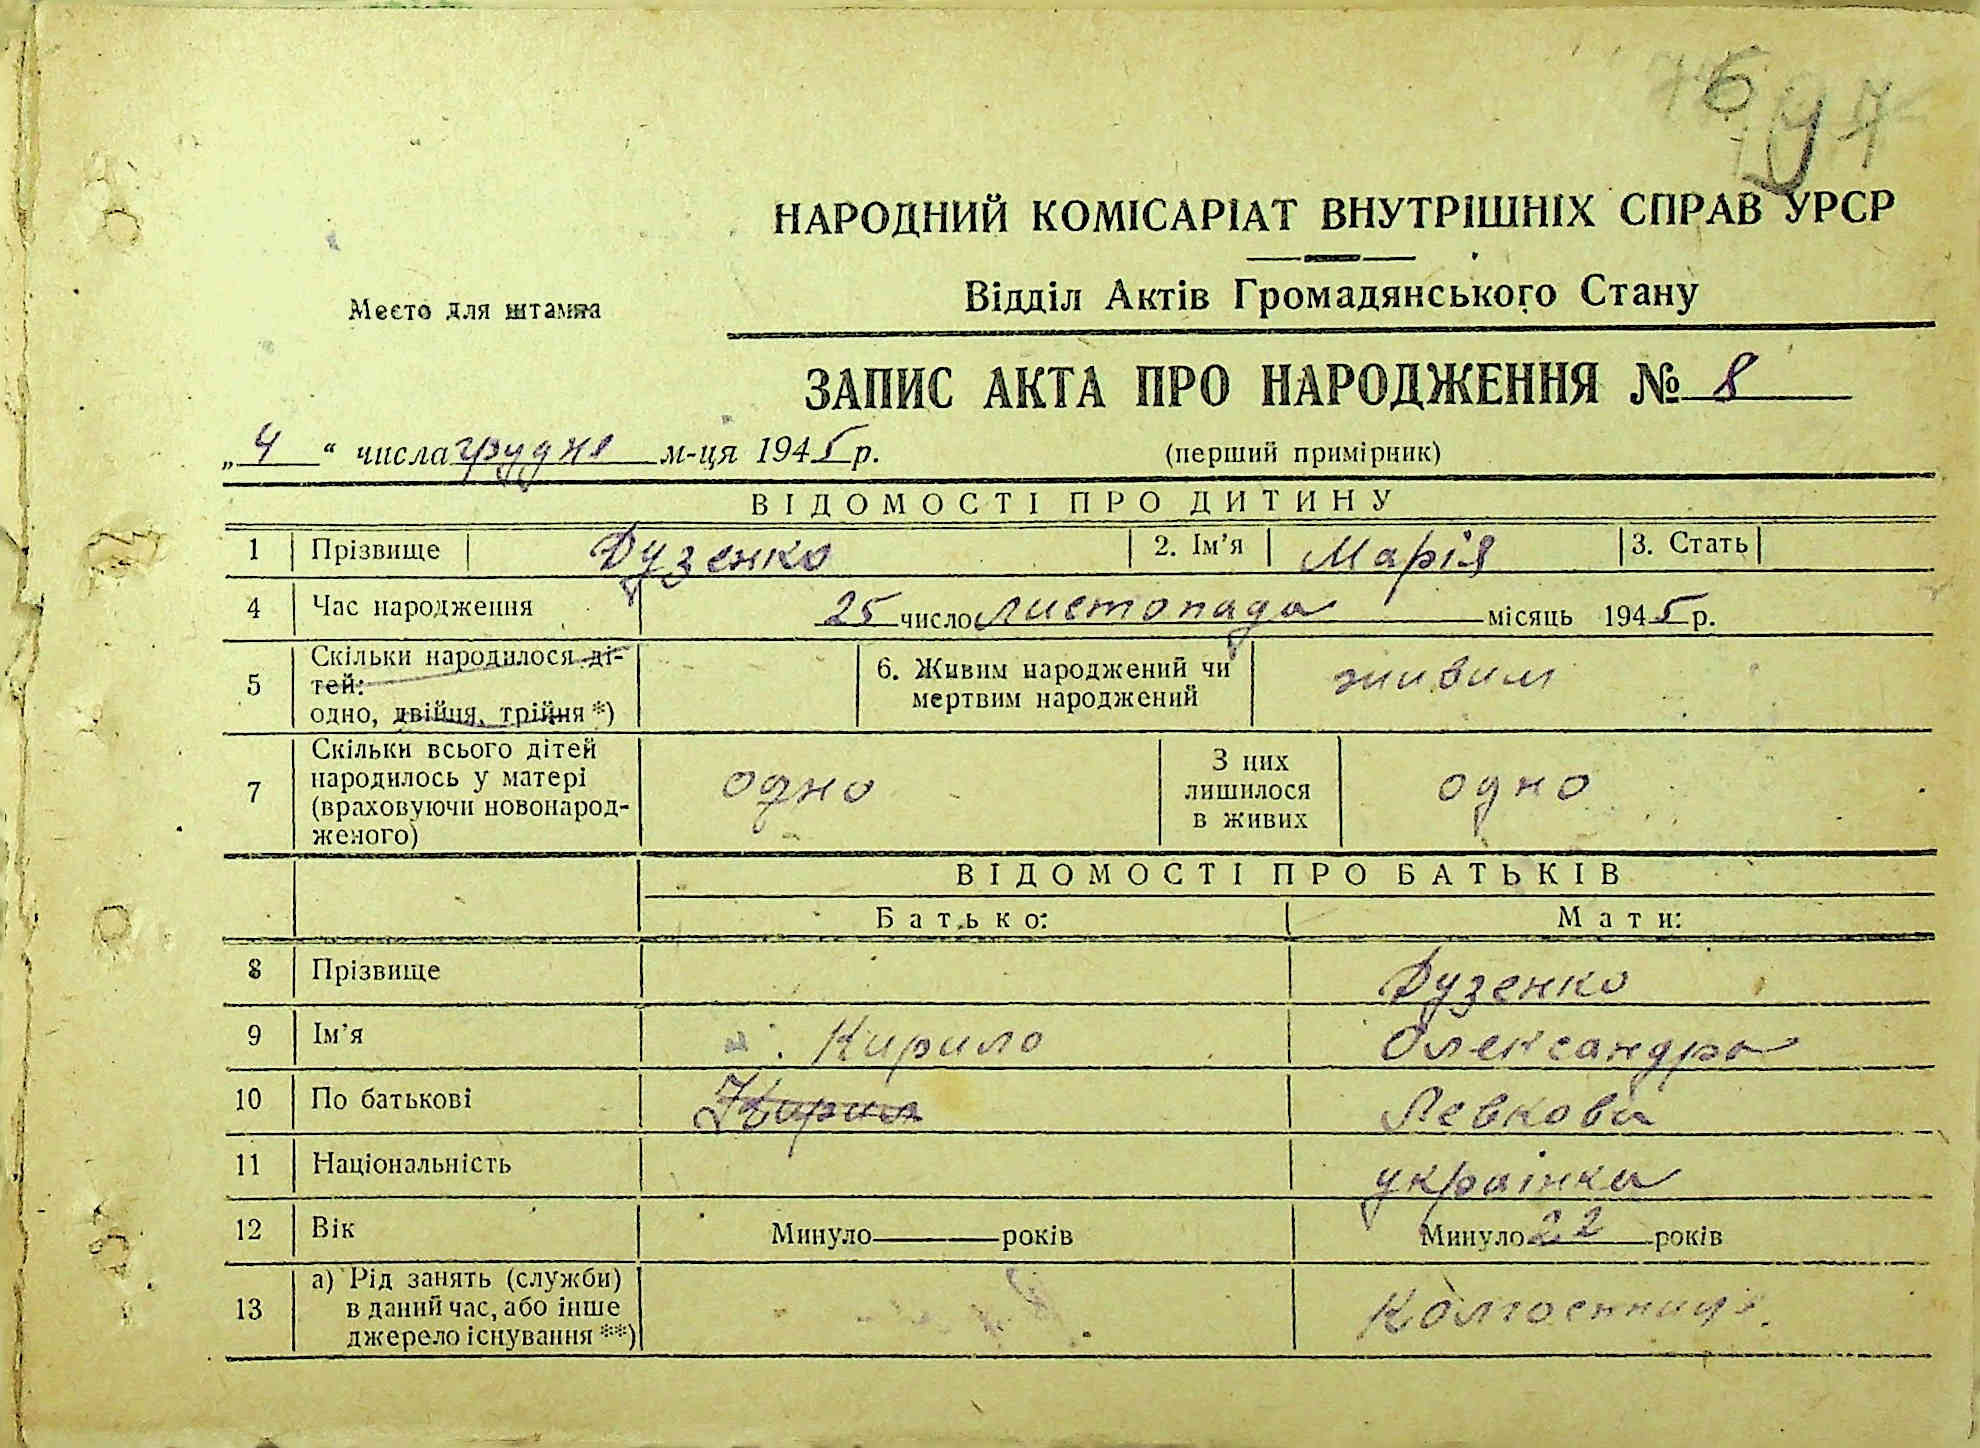 697
НАРОДНИЙ КОМІСАРІАТ ВНУТРІШНІХ СПРАВ УРСР
Место для штампа
Відділ Актів Громадянського Стану
ЗАПИС АКТА ПРО НАРОДЖЕННЯ № 8
„4“ числа грудня м-ця 1945 р. (перший примірник)
ВІДОМОСТІ ПРО ДИТИНУ
1 Прізвище Дузенко 2. Ім’я Марія 3. Стать
4 Час народження 25 число листопада місяць 1945 р.
5 Скільки народилося ді-
тей:
одно, двійня, трійня *)
6. Живим народжений чи
мертвим народжений
живим
7 Скільки всього дітей
народилось у матері
(враховуючи новонарод-
женого)
одно
З них
лишилося
в живих
одно
ВІДОМОСТІ ПРО БАТЬКІВ
Батько: Мати:
8 Прізвище Дузенко
9 Ім’я Кирило Олександра
10 По батькові Кирил Левкова
11 Національність українка
12 Вік Минуло років Минуло 22 років
13 а) Рід занять (служби)
в даний час, або інше
джерело існування **)
Колгоспниця.